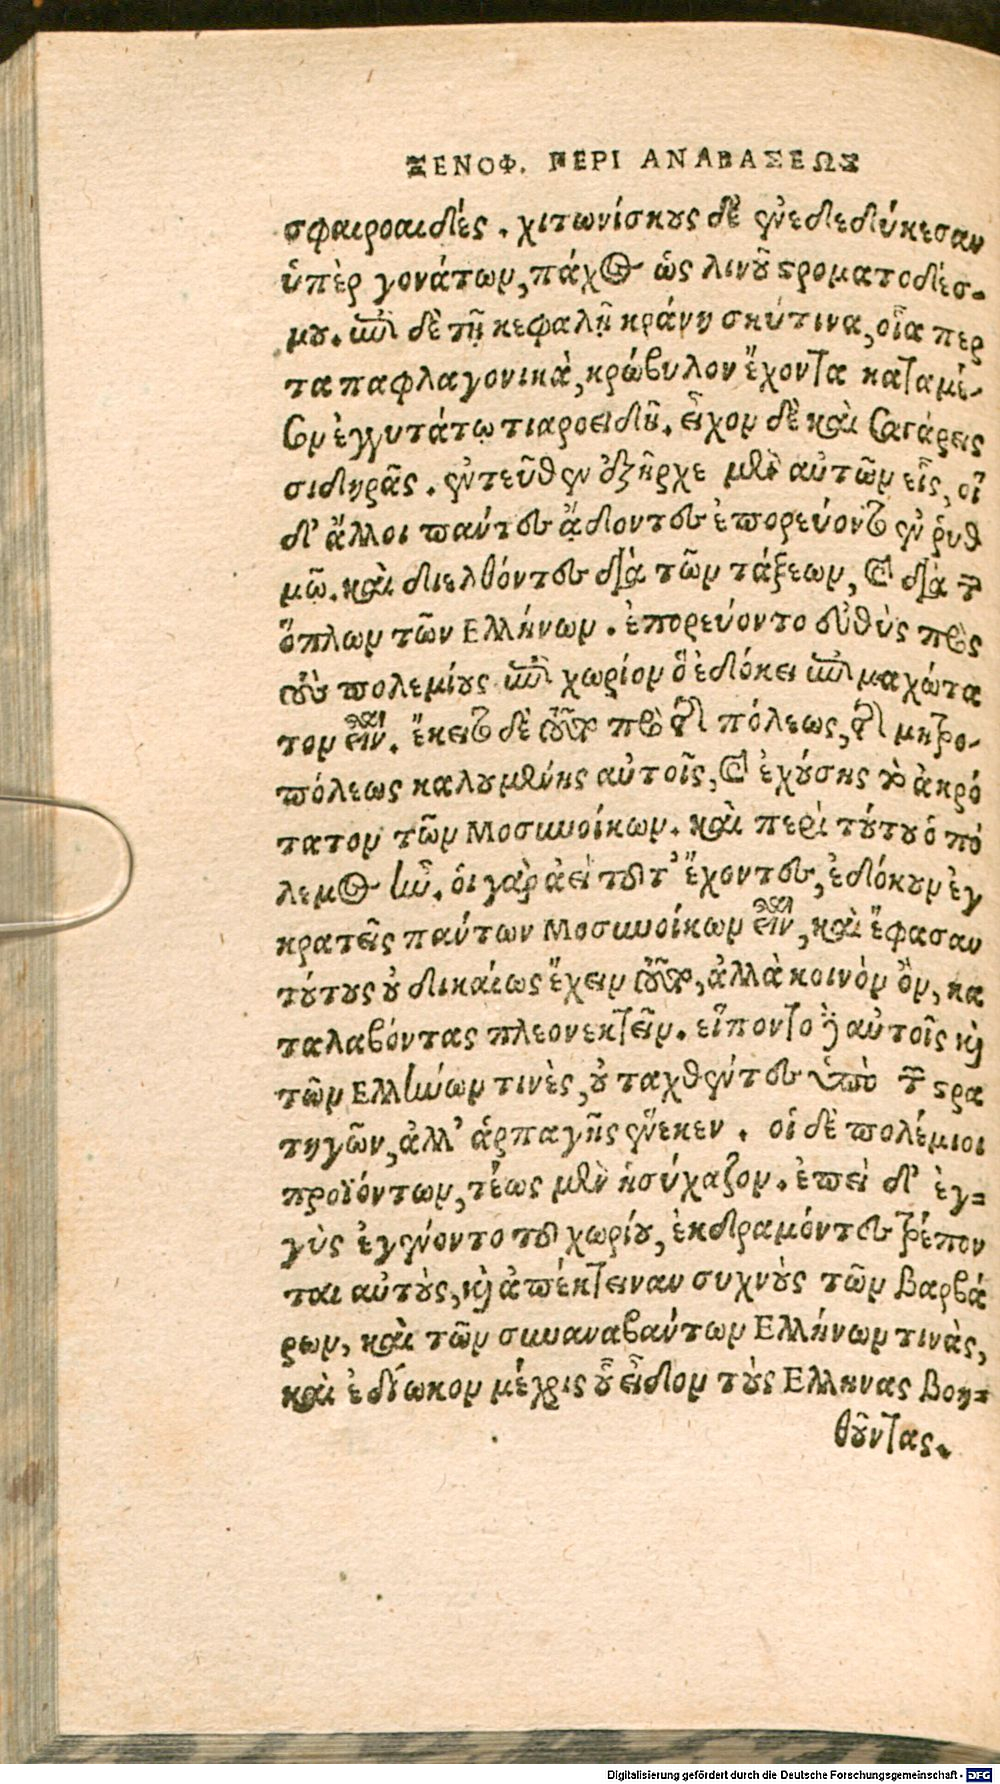 ΞΕΝΟΦ. ΠΕΡΙ ΑΝΑΒΑΣΕΩΣ
σφαιροαιδές. χιτωνίσκους δὲ ἐνεδεδύκεσαν
ὑπὲρ γονάτων, πάχος ὡς λινοῦ στροματοδέσ-
μου. ἐπὶ δὲ τῇ κεφαλῇ κράνη σκύτινα, οἷα περ
τα παφλαγονικὰ, κρώβυλον ἔχοντα κατα μέ-
σον ἐγγυτάτω τιαροειδῆ. εἶχον δὲ καὶ σαγάρεις
σιδηρᾶς. ἐντεῦθεν ἐξῆρχε μὲν αὐτῶν εἷς, οἱ
δ' ἄλλοι πάντες ᾄδοντες ἐπορεύοντο ἐν ῥυθ
μῷ. καὶ διελθόντες διὰ τῶν τάξεων, καὶ διὰ τῶν
ὅπλων τῶν Ελλήνων. ἐπορεύοντο εὐθὺς πρὸς
τοὺς πολεμίους ἐπὶ χωρίον ὃ ἐδόκει ἐπιμαχώτα
τον εἶναι. ἔκειτο δὲ τοῦτο πρὸ τῆς πόλεως, τῆς μητρο-
πόλεως καλουμένης αὐτοῖς, καὶ ἐχούσης τὸ ἀκρό
τατον τῶν Μοσυνοίκων. καὶ περὶ τούτου ὁ πό
λεμος ἦν. οἱ γαρ ἀεὶ τοῦτ' ἔχοντες, ἐδόκουν ἐγ
κρατεῖς πάντων Μοσυνοίκων εἶναι, καὶ ἔφασαν
τούτους οὐ δικαίως ἔχειν τοῦτο, ἀλλὰ κοινὸν ὂν, κα
ταλαβόντας πλεονεκτεῖν. εἵποντο δὲ αὐτοῖς καὶ
τῶν Ελλήνων τινὲς, οὐ ταχθέντες ὑπὸ τῶν στρα
τηγῶν, ἀλλ' ἁρπαγῆς ἕνεκεν. οἱ δὲ πολέμιοι
προϊόντων, τέως μὲν ἡσύχαζον. ἐπεὶ δ' ἐγ-
γὺς ἐγένοντο τοῦ χωρίου, ἐκδραμόντες τρέπον
ται αὐτοὺς, καὶ ἀπέκτειναν συχνοὺς τῶν βαρβά
ρων, καὶ τῶν συναναβάντων Ελλήνων τινὰς,
καὶ ἐδίωκον μέχρις οὗ εἶδον τοὺς Ελληνας βοη-
θοῦντας.
Digitalisierung gefördert durch die Deutsche Forschungsgemeinschaft - DFG